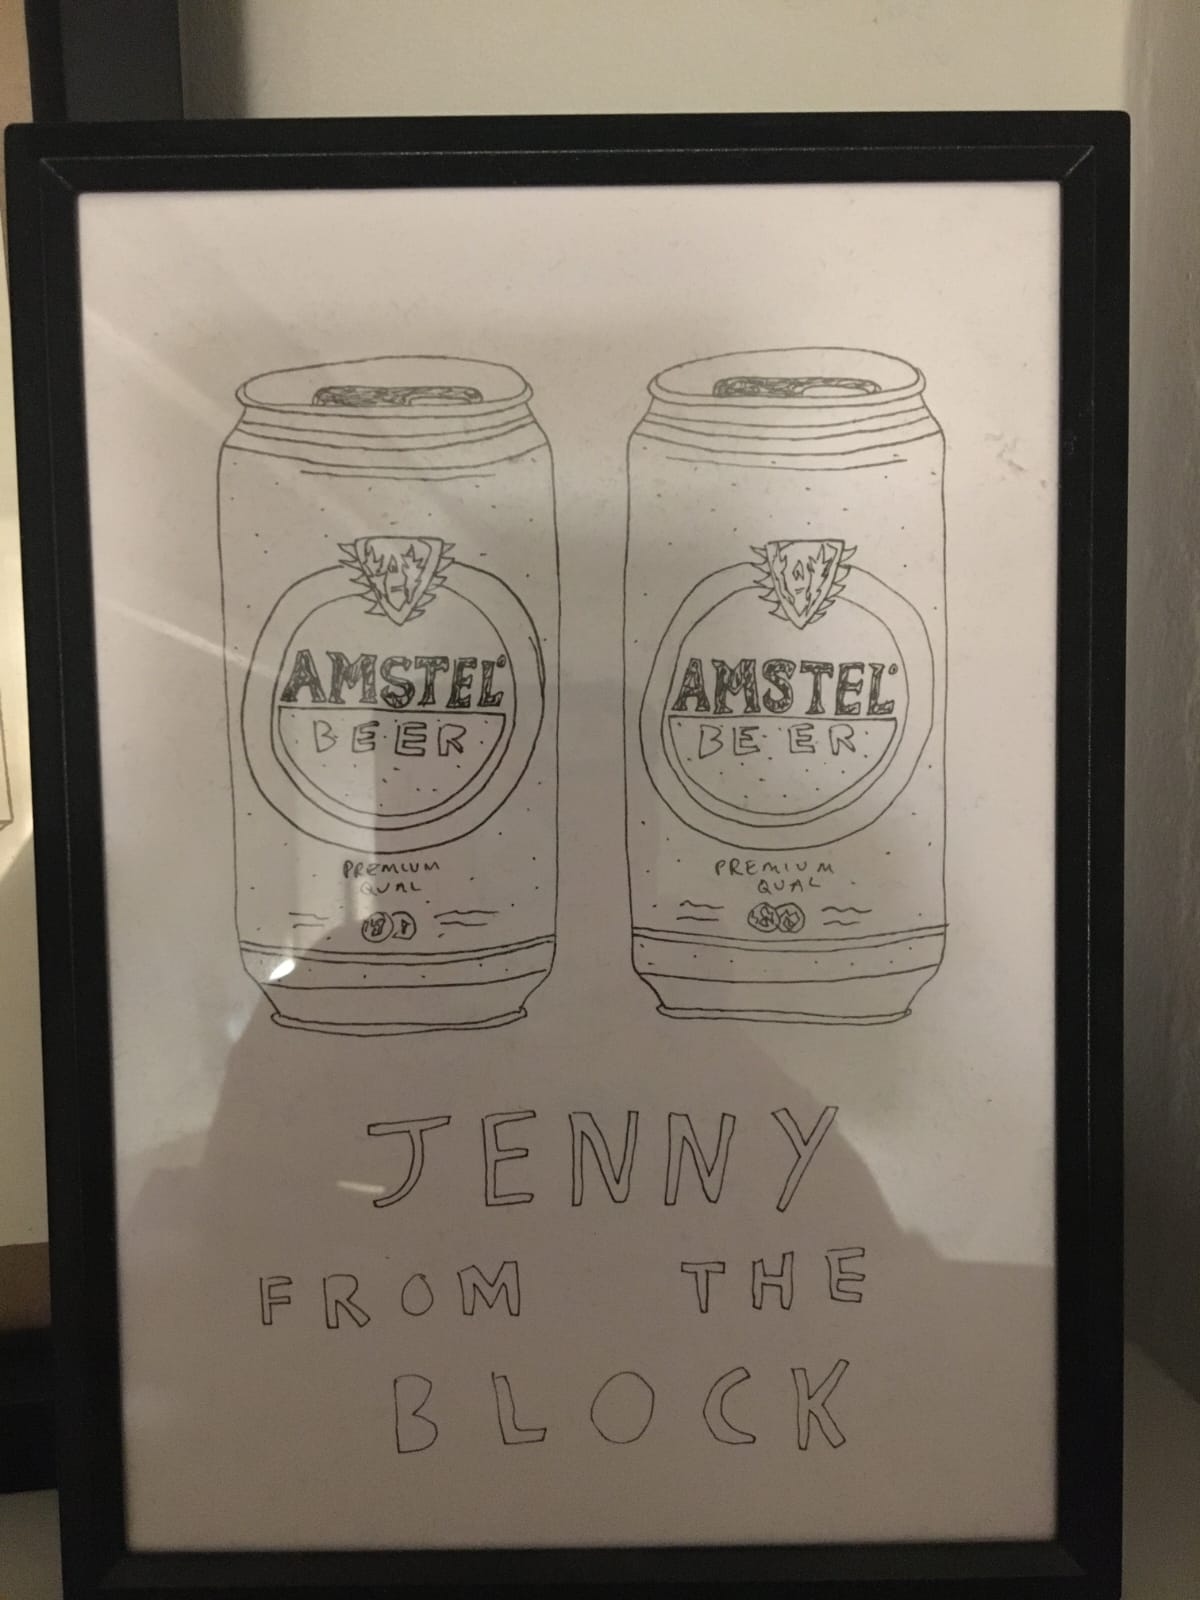 AMSTEL
BEER
PREMIUM
QUAL
AMSTEL
BEER
PREMIUM
QUAL
JENNY
FROM THE
BLOCK